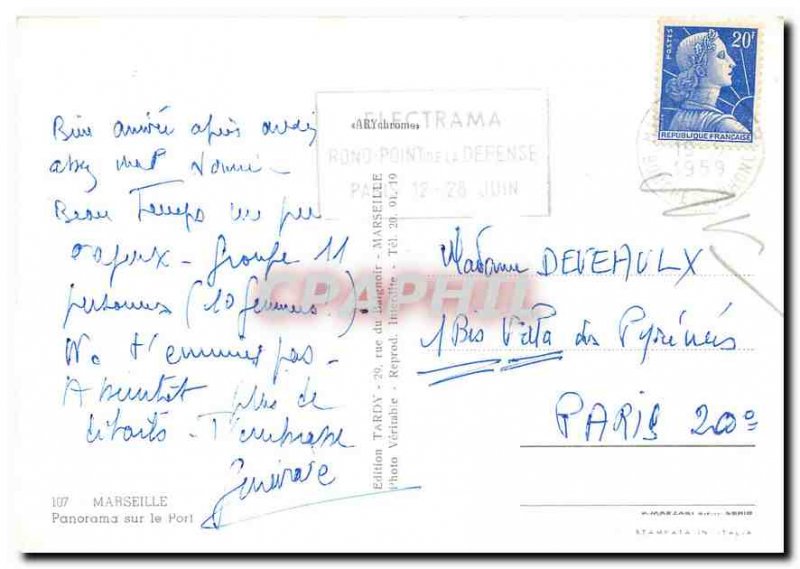 Bien arrivée après avoir
assez mal dormi -
Beau Temps un peu
- Groupe 11
personnes (10 femmes)
Ne t'ennuies pas -
A bientôt plus de
détails - T'embrasse
Geneviève
107 MARSEILLE
Panorama sur le Port
«ARYchrome»
Edition TARDY - 29, rue du Baignoir - MARSEILLE
Photo Véritable - Reprod. Interdite - Tél. 20.01.19
ELECTRAMA
ROND-POINT DE LA DEFENSE
PARIS 12-28 JUIN
POSTES
20F
REPUBLIQUE FRANÇAISE
1959
Madame DEVEAULX
1 Bis Villa des Pyrénées
PARIS 20e
CPAPHIL